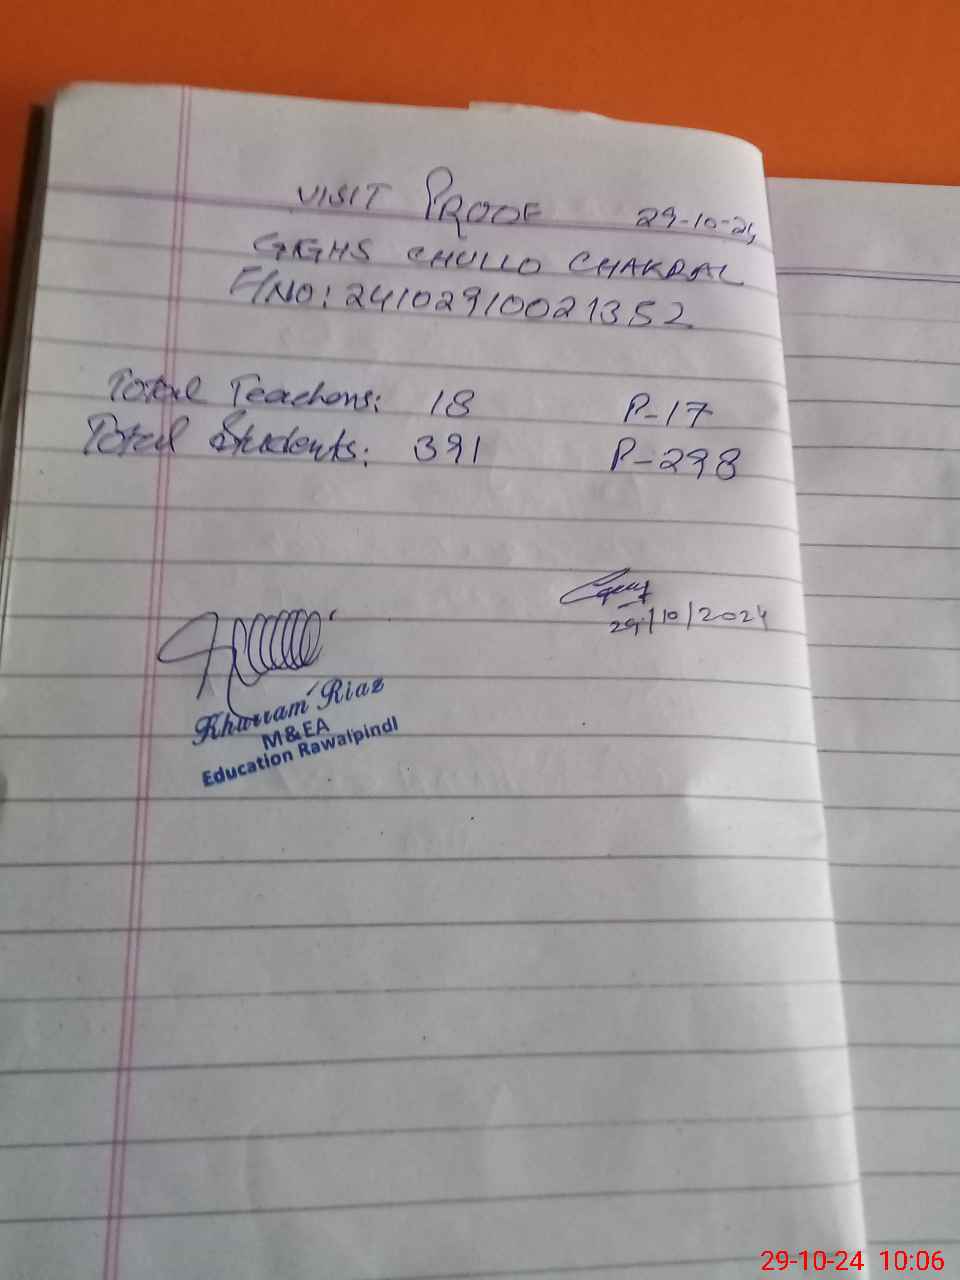 VISIT PROOF 29-10-24
GGHS CHULLO CHAKRAL
F/NO: 24102910021352
Total Teachers: 18 P-17
Total Students: 391 P-298
29/10/2024
Khurram Riaz
M&EA
Education Rawalpindi
29-10-24 10:06